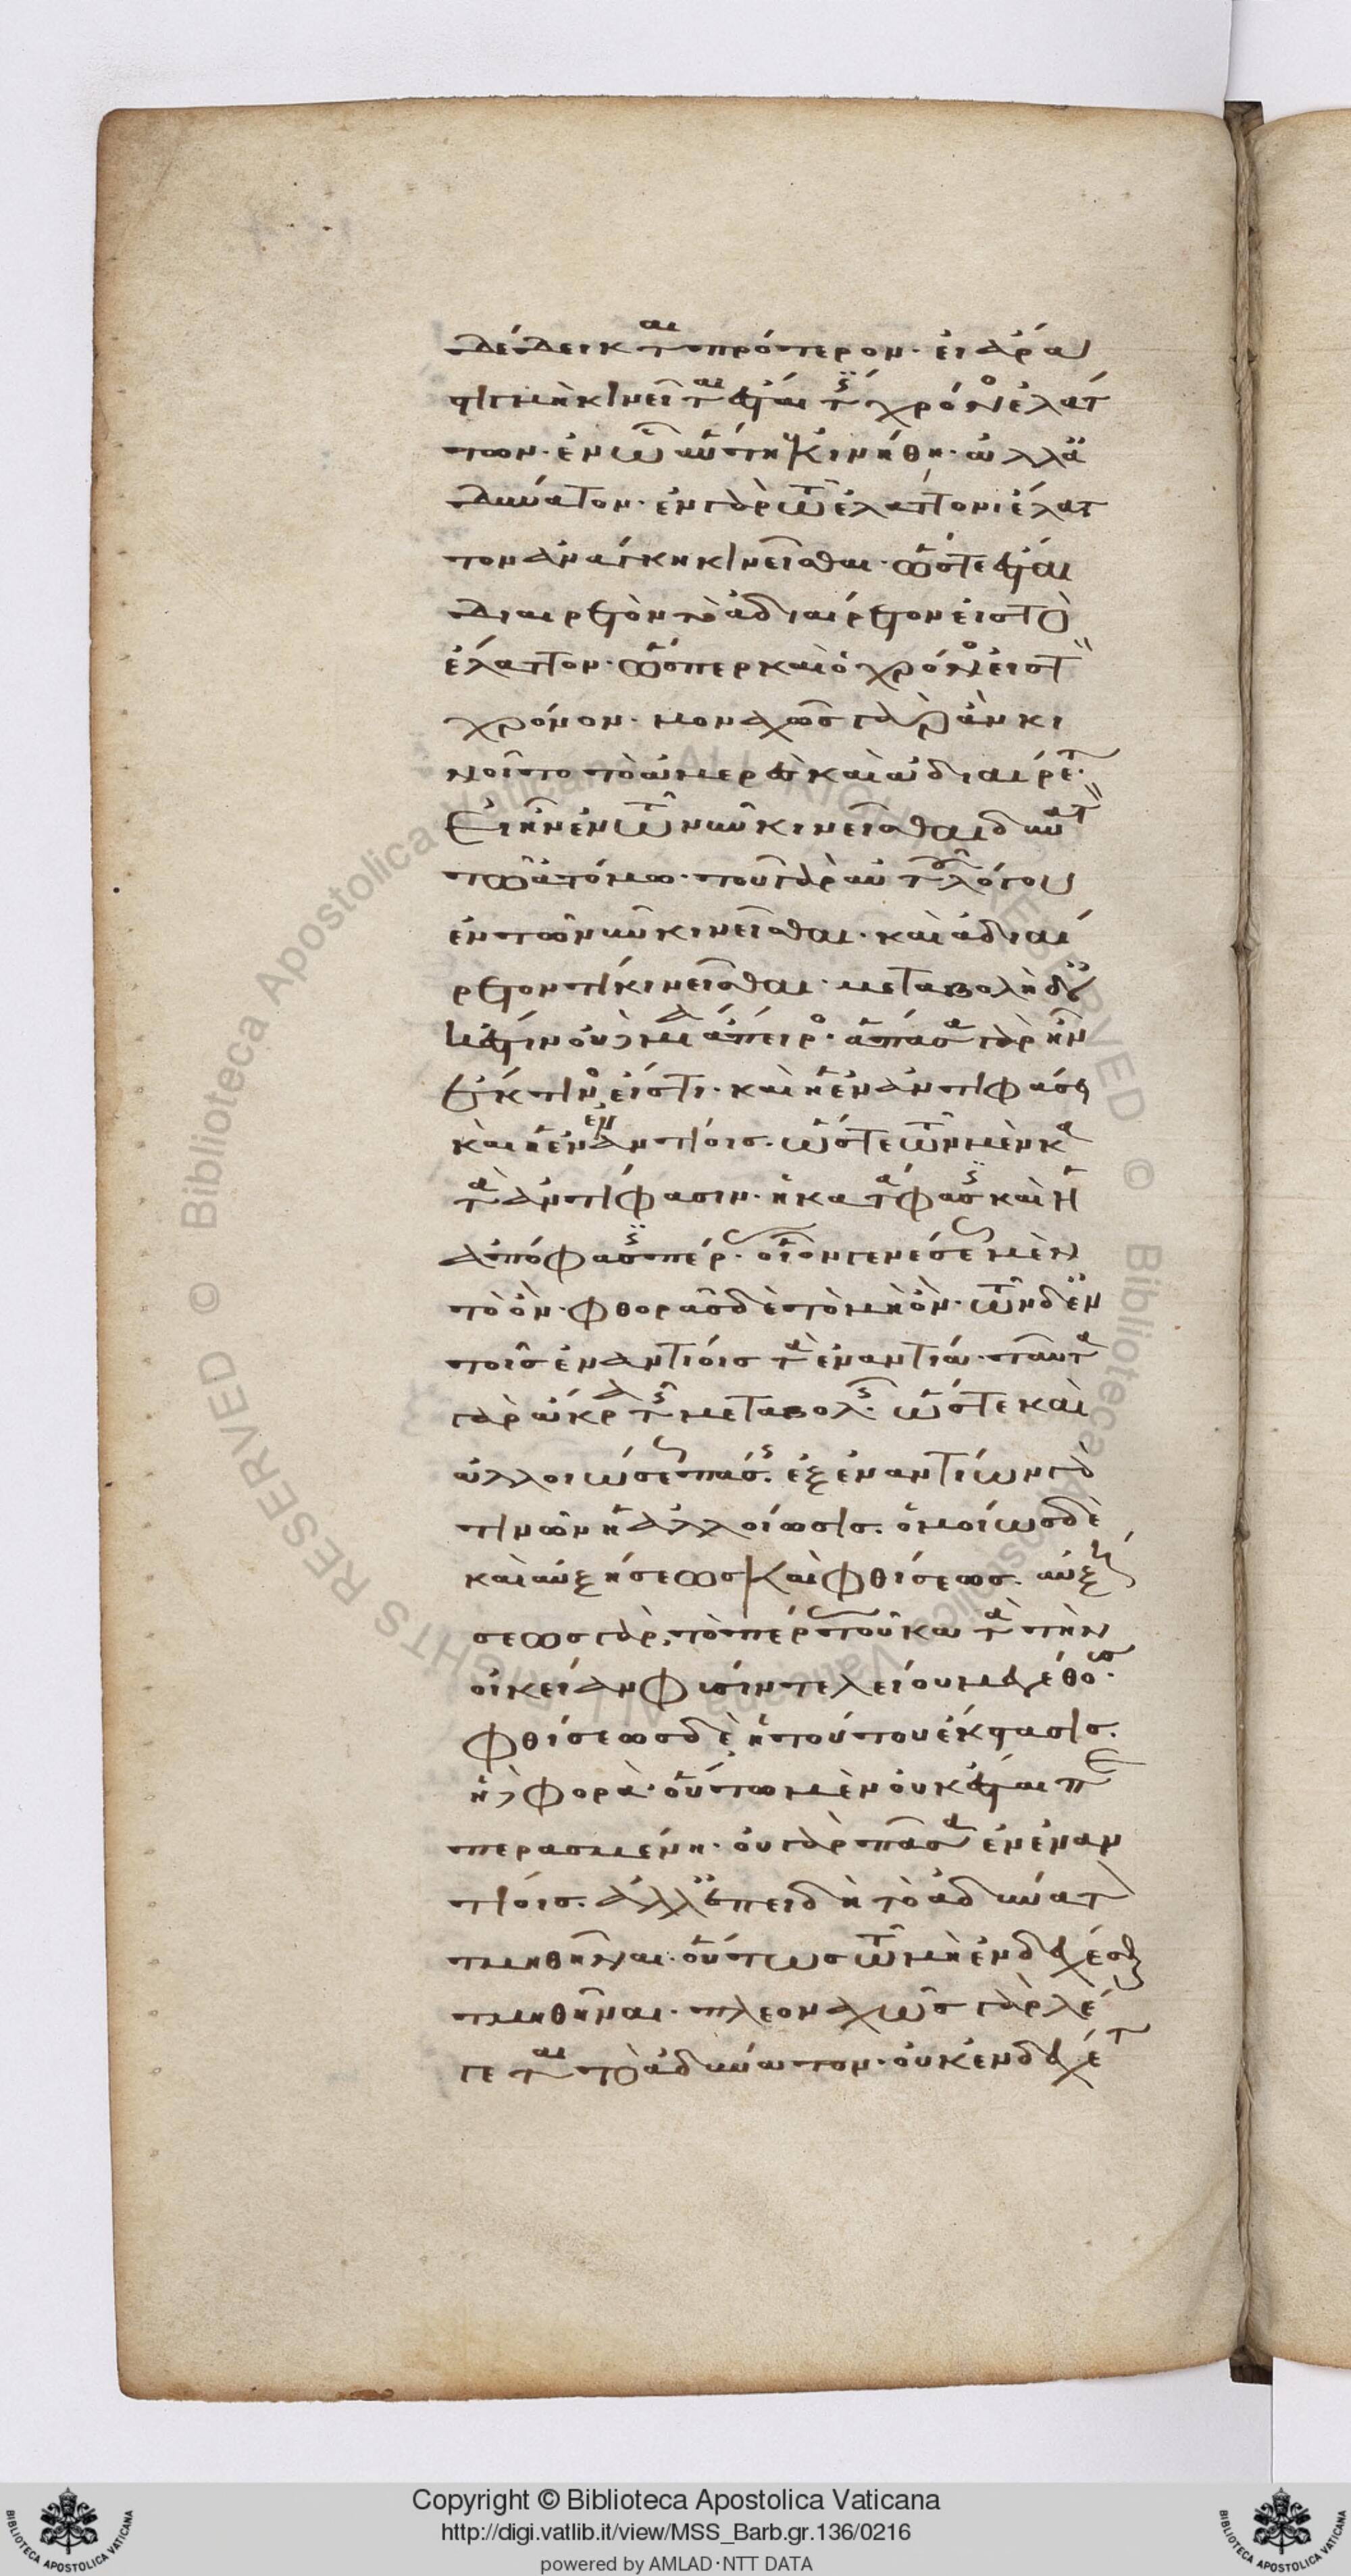 δέδεικται πρότερον· εἰ ἄρα
στιγμὴ κινεῖται ἔσται τις χρόνος ἐλάτ
των· ἐν ᾧ αὕτη ἐκινήθη· ἀλλὰ
δύνατον· ἐν γὰρ τῷ ἐλάττονι ἔλατ
τον ἀνάγκη κινεῖσθαι· ὥστε ἔσται
διαιρετὸν τὸ ἀδιαίρετον εἰς τὸ
ἔλαττον· ὥσπερ καὶ ὁ χρόνος εἰς τὸν
χρόνον· μοναχῶς γὰρ ἂν κι
νοῖτο τὸ ἀμερὲς καὶ ἀδιαίρετον·
εἰ ἦν ἐν τῷ νῦν κινεῖσθαι δυνατὸν
τῷ ἀτόμῳ· τοῦ γὰρ αὐτοῦ λόγου
ἐν τῷ νῦν κινεῖσθαι· καὶ ἀδιαί
ρετόν τι κινεῖσθαι· μεταβολὴ δ' οὐ
κ ἔστιν οὐδεμία ἄπειρος· ἅπασα γὰρ ἦν
ἔκ τινος εἴς τι· καὶ ἡ ἐν ἀντιφάσει
καὶ ἡ ἐν ἐναντίοις· ὥστε τῶν μὲν κα
τὰ ἀντίφασιν· ἡ κατάφασις καὶ ἡ
ἀπόφασις πέρας· οἷον γενέσεως μὲν
τὸ ὄν· φθορᾶς δὲ τὸ μὴ ὄν· τῶν δ' ἐν
τοῖς ἐναντίοις τὰ ἐναντία· ταῦτα
γὰρ ἄκρα τῆς μεταβολῆς· ὥστε καὶ
ἀλλοιώσεως πάσης· ἐξ ἐναντίων γά
τινων ἡ ἀλλοίωσις· ὁμοίως δὲ
καὶ αὐξήσεως καὶ φθίσεως· αὐξή
σεως γὰρ, τὸ πέρας τοῦ κατὰ τὴν
οἰκείαν φύσιν τελείου μεγέθους·
φθίσεως δὲ ἡ τούτου ἔκστασις·
ἡ δὲ φορὰ· οὕτω μὲν οὐκ ἔσται πε
περασμένη· οὐ γὰρ πᾶσα ἐν ἐναν
τίοις· ἀλλ' ἐπειδὴ τὸ ἀδύνατον
τμηθῆναι· οὕτως τῷ μὴ ἐνδέχεσθαι
τμηθῆναι· πλεοναχῶς γὰρ λέ
γεται τὸ ἀδύνατον· οὐκ ἐνδέχετ
Copyright © Biblioteca Apostolica Vaticana
http://digi.vatlib.it/view/MSS_Barb.gr.136/0216
powered by AMLAD·NTT DATA